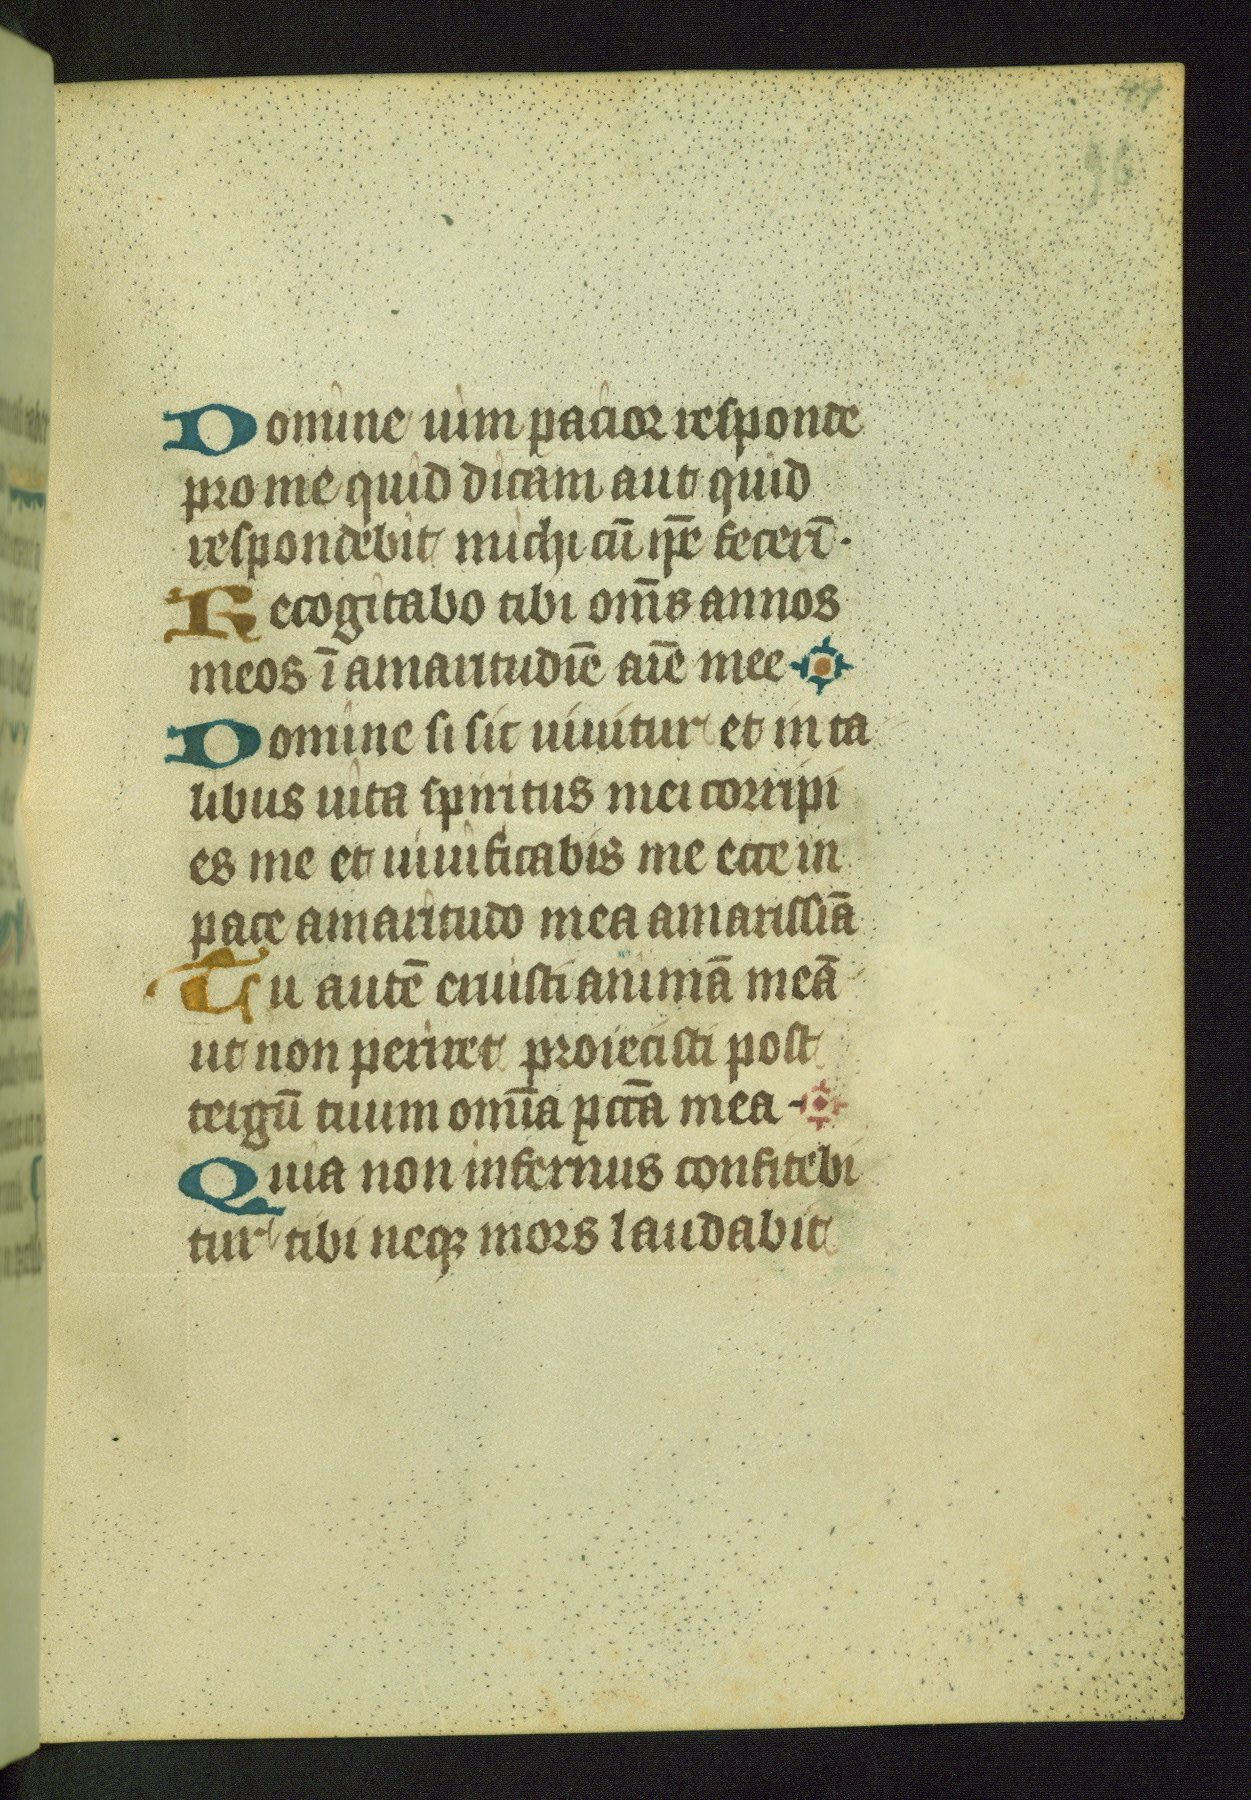 96
Domine uim pacior responde
pro me quid dicam aut quid
respondebit michi cū ip̄e fecerī̄t·
Recogitabo tibi om̄s annos
meos ī amaritudīe aīe mee
Domine si sic uiuitur et in ta
libus uita spiritus mei corripi
es me et uiuificabis me ecce in
pace amaritudo mea amarissīa
Tu autē eruisti animā meā
ut non periret proiecisti post
tergū tuum om̄ia pcc̄a mea
Quia non infernus confitebi
tur tibi neqꝫ mors laudabit